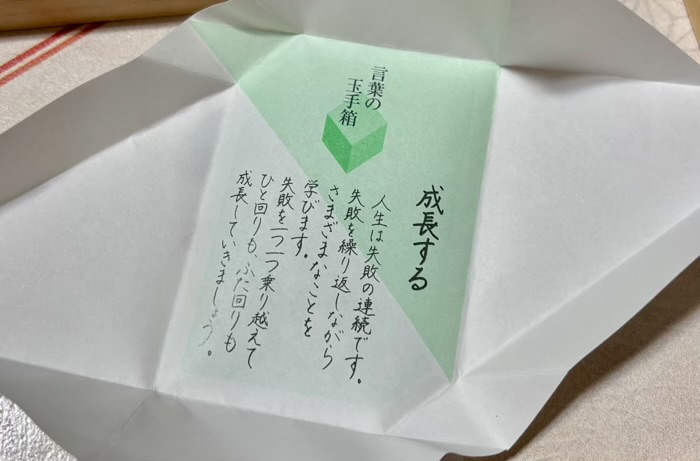 言葉の
玉手箱
成長する
人生は失敗の連続です。
失敗を繰り返しながら
さまざまなことを
学びます。
失敗を一つ一つ乗り越えて
ひと回りも、ふた回りも
成長していきましょう。